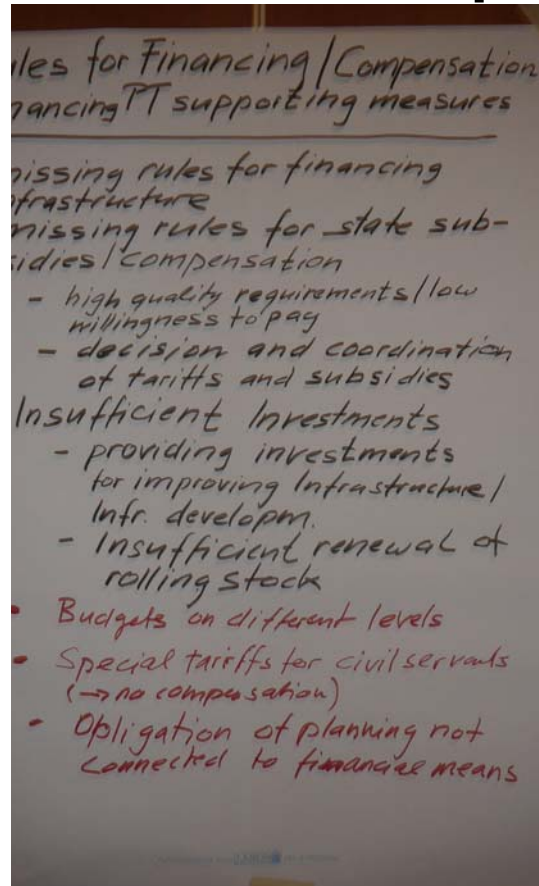 les for Financing / Compensation
nancing PT supporting measures
missing rules for financing
frastructure
missing rules for state sub-
sidies / compensation
- high quality requirements / low
willingness to pay
- decision and coordination
of tariffs and subsidies
Insufficient Investments
- providing investments
for improving Infrastructure /
Infr. developm.
- Insufficient renewal of
rolling stock
• Budgets on different levels
• Special tariffs for civil servants
(→ no compensation)
• Obligation of planning not
connected to financial means